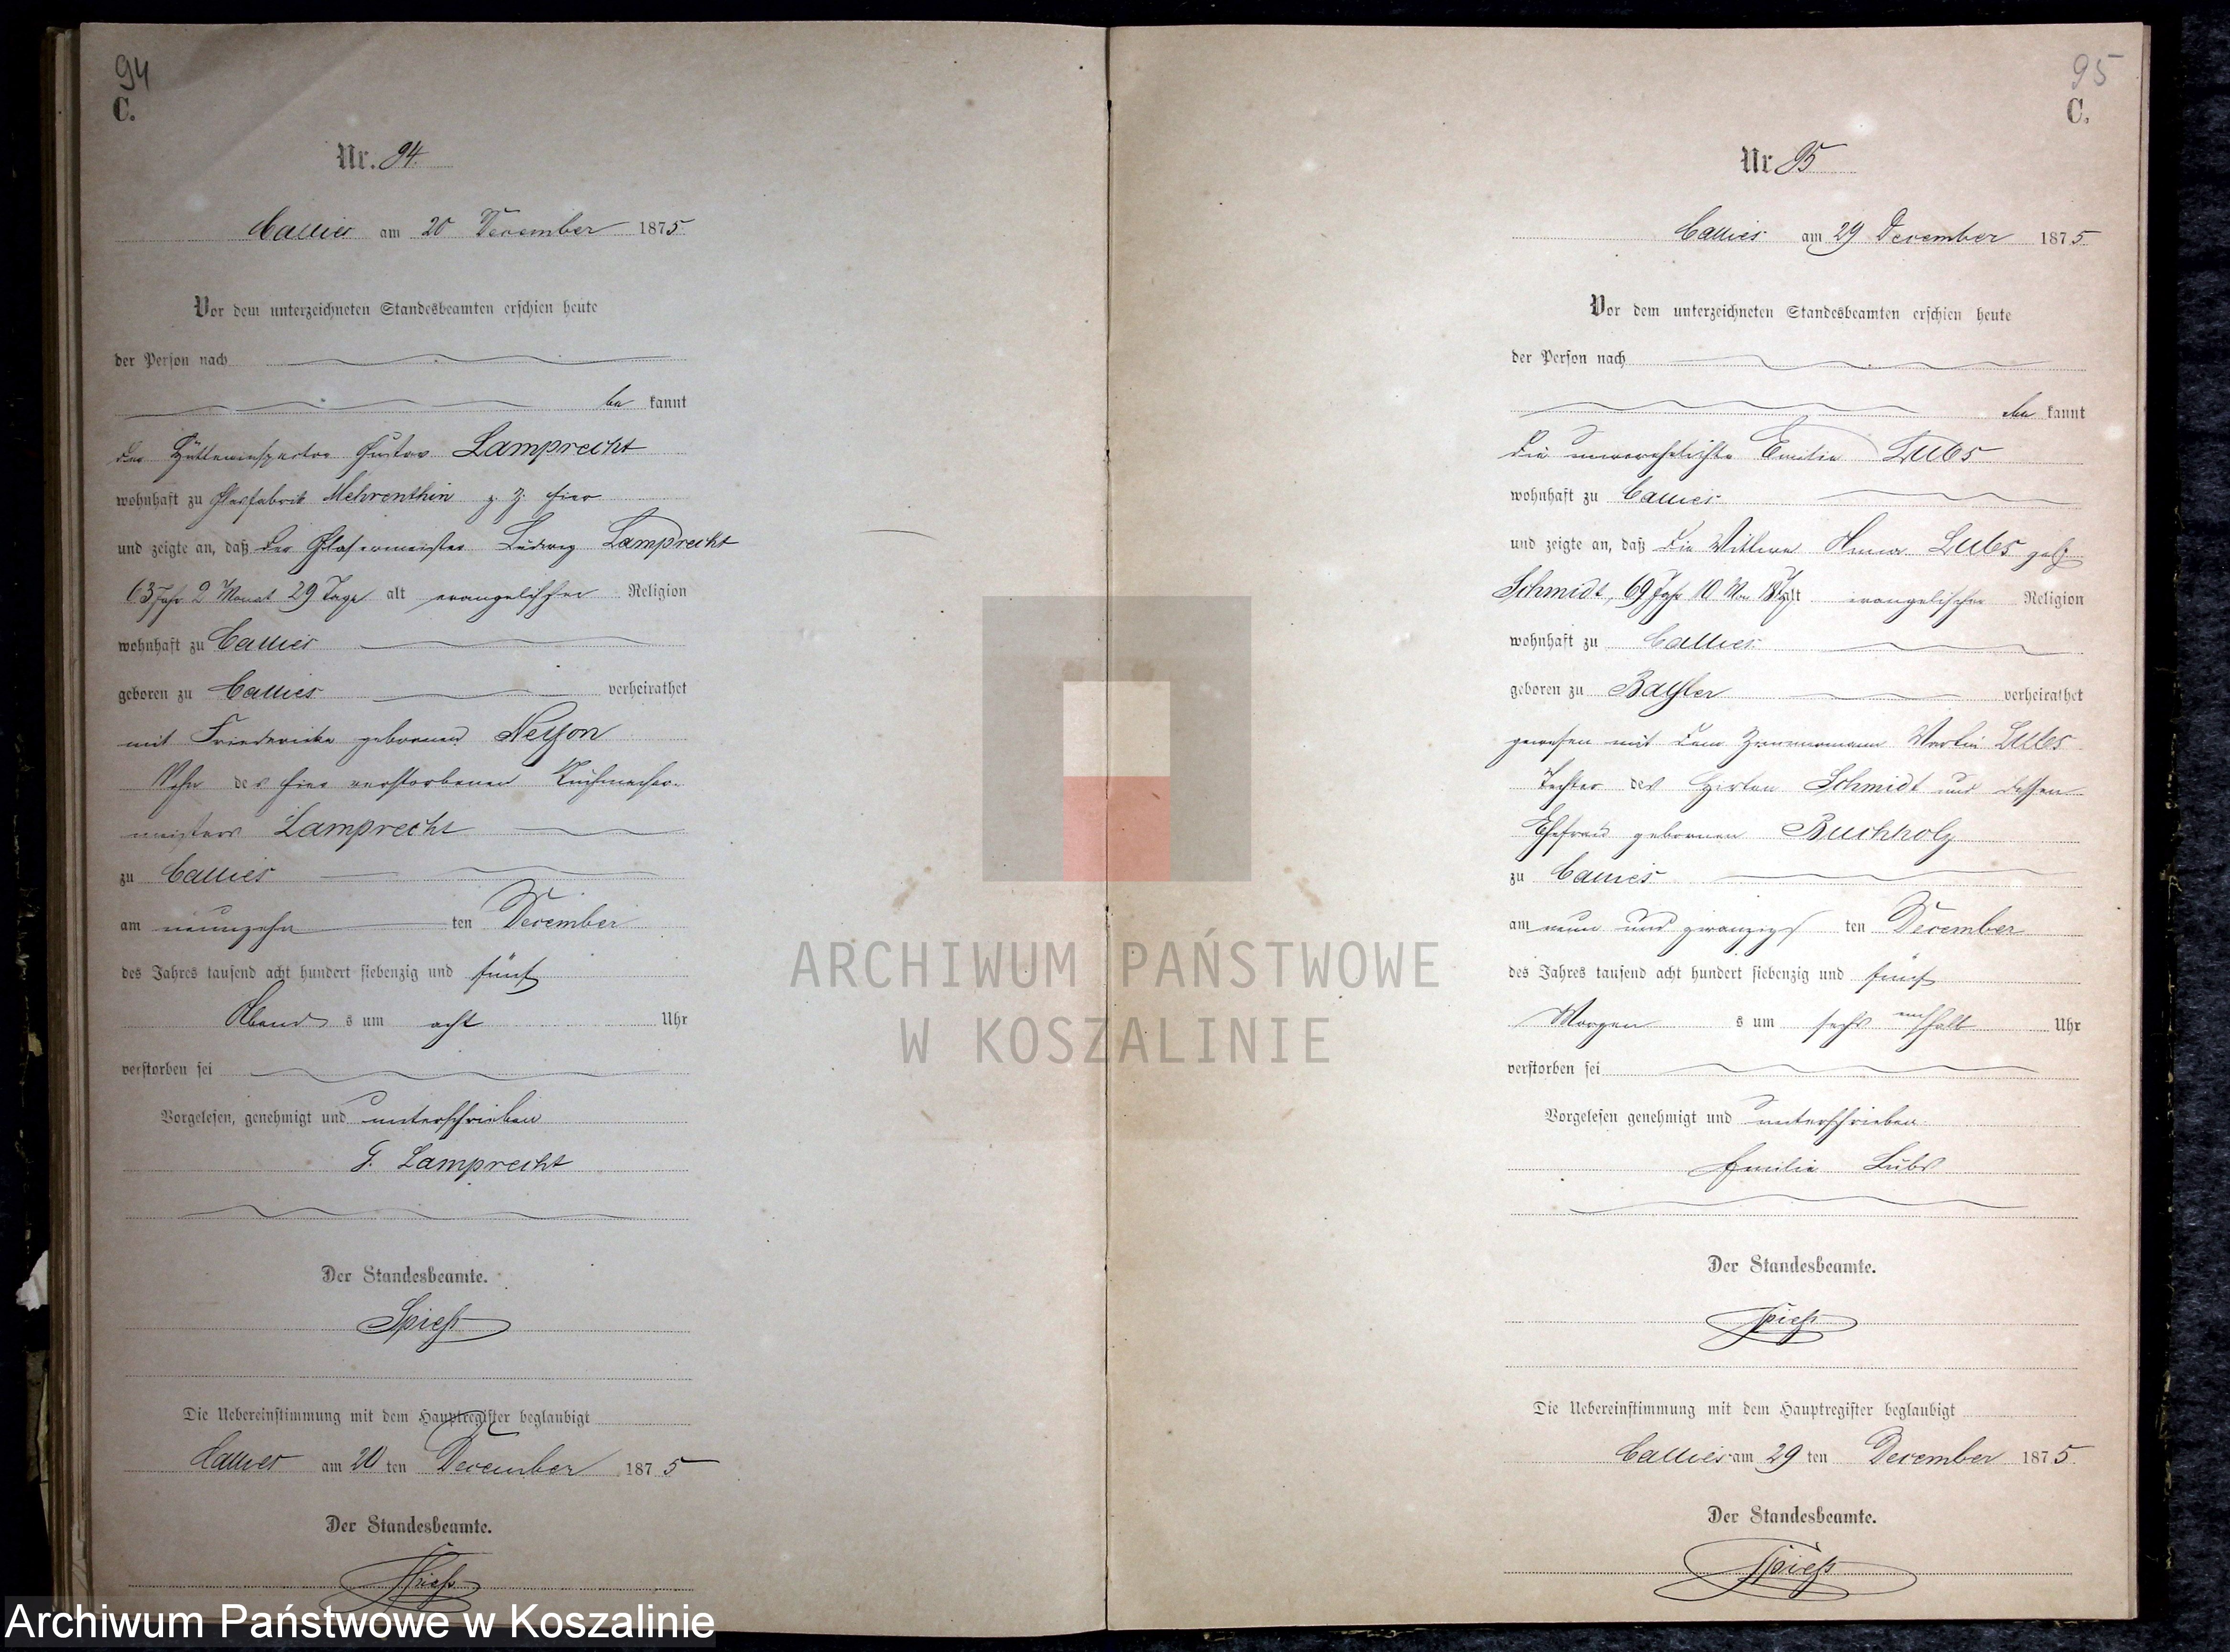 94
C.
Nr. 94.
Callies am 20 December 1875
Vor dem unterzeichneten Standesbeamten erschien heute
der Person nach
be kannt
der Hütteninspector Gustav Lamprecht
wohnhaft zu Glasfabrik Mehrenthin z. Z. hier
und zeigte an, daß der Glasermeister Ludwig Lamprecht
63 Jahr 2 Monat 29 Tage alt evangelischer Religion
wohnhaft zu Callies
geboren zu Callies verheirathet
mit Friederike geborenen
Sohn des hier verstorbenen Tuchmacher-
meisters Lamprecht
zu Callies
am neunzehn ten December
des Jahres tausend acht hundert siebenzig und fünf
Abend s um acht Uhr
verstorben sei
Vorgelesen, genehmigt und unterschrieben
G. Lamprecht
Der Standesbeamte.
Spieß
Die Uebereinstimmung mit dem Hauptregister beglaubigt
Callies am 20 ten December 1875
Der Standesbeamte.
Spieß
95
C.
Nr 95
Callies am 29 December 1875
Vor dem unterzeichneten Standesbeamten erschien heute
der Person nach
be kannt
die unverehelichte Emilie Lubs
wohnhaft zu Callies
und zeigte an, daß die Wittwe Anna Lubs geb
Schmidt, 69 Jahr 10 Mon 18 Tg alt evangelischer Religion
wohnhaft zu Callies
geboren zu verheirathet
gewesen mit dem Zimmermann Martin Lubs
Tochter des Hirten Schmidt und dessen
Ehefrau geborenen Buchholz
zu Callies
am neun und zwanzigs ten December
des Jahres tausend acht hundert siebenzig und fünf
Morgen s um sechs einhalb Uhr
verstorben sei
Vorgelesen genehmigt und unterschrieben
Emilie Lubs
Der Standesbeamte.
Spieß
Die Uebereinstimmung mit dem Hauptregister beglaubigt
Callies am 29 ten December 1875
Der Standesbeamte.
Spieß
ARCHIWUM PAŃSTWOWE
W KOSZALINIE
Archiwum Państwowe w Koszalinie